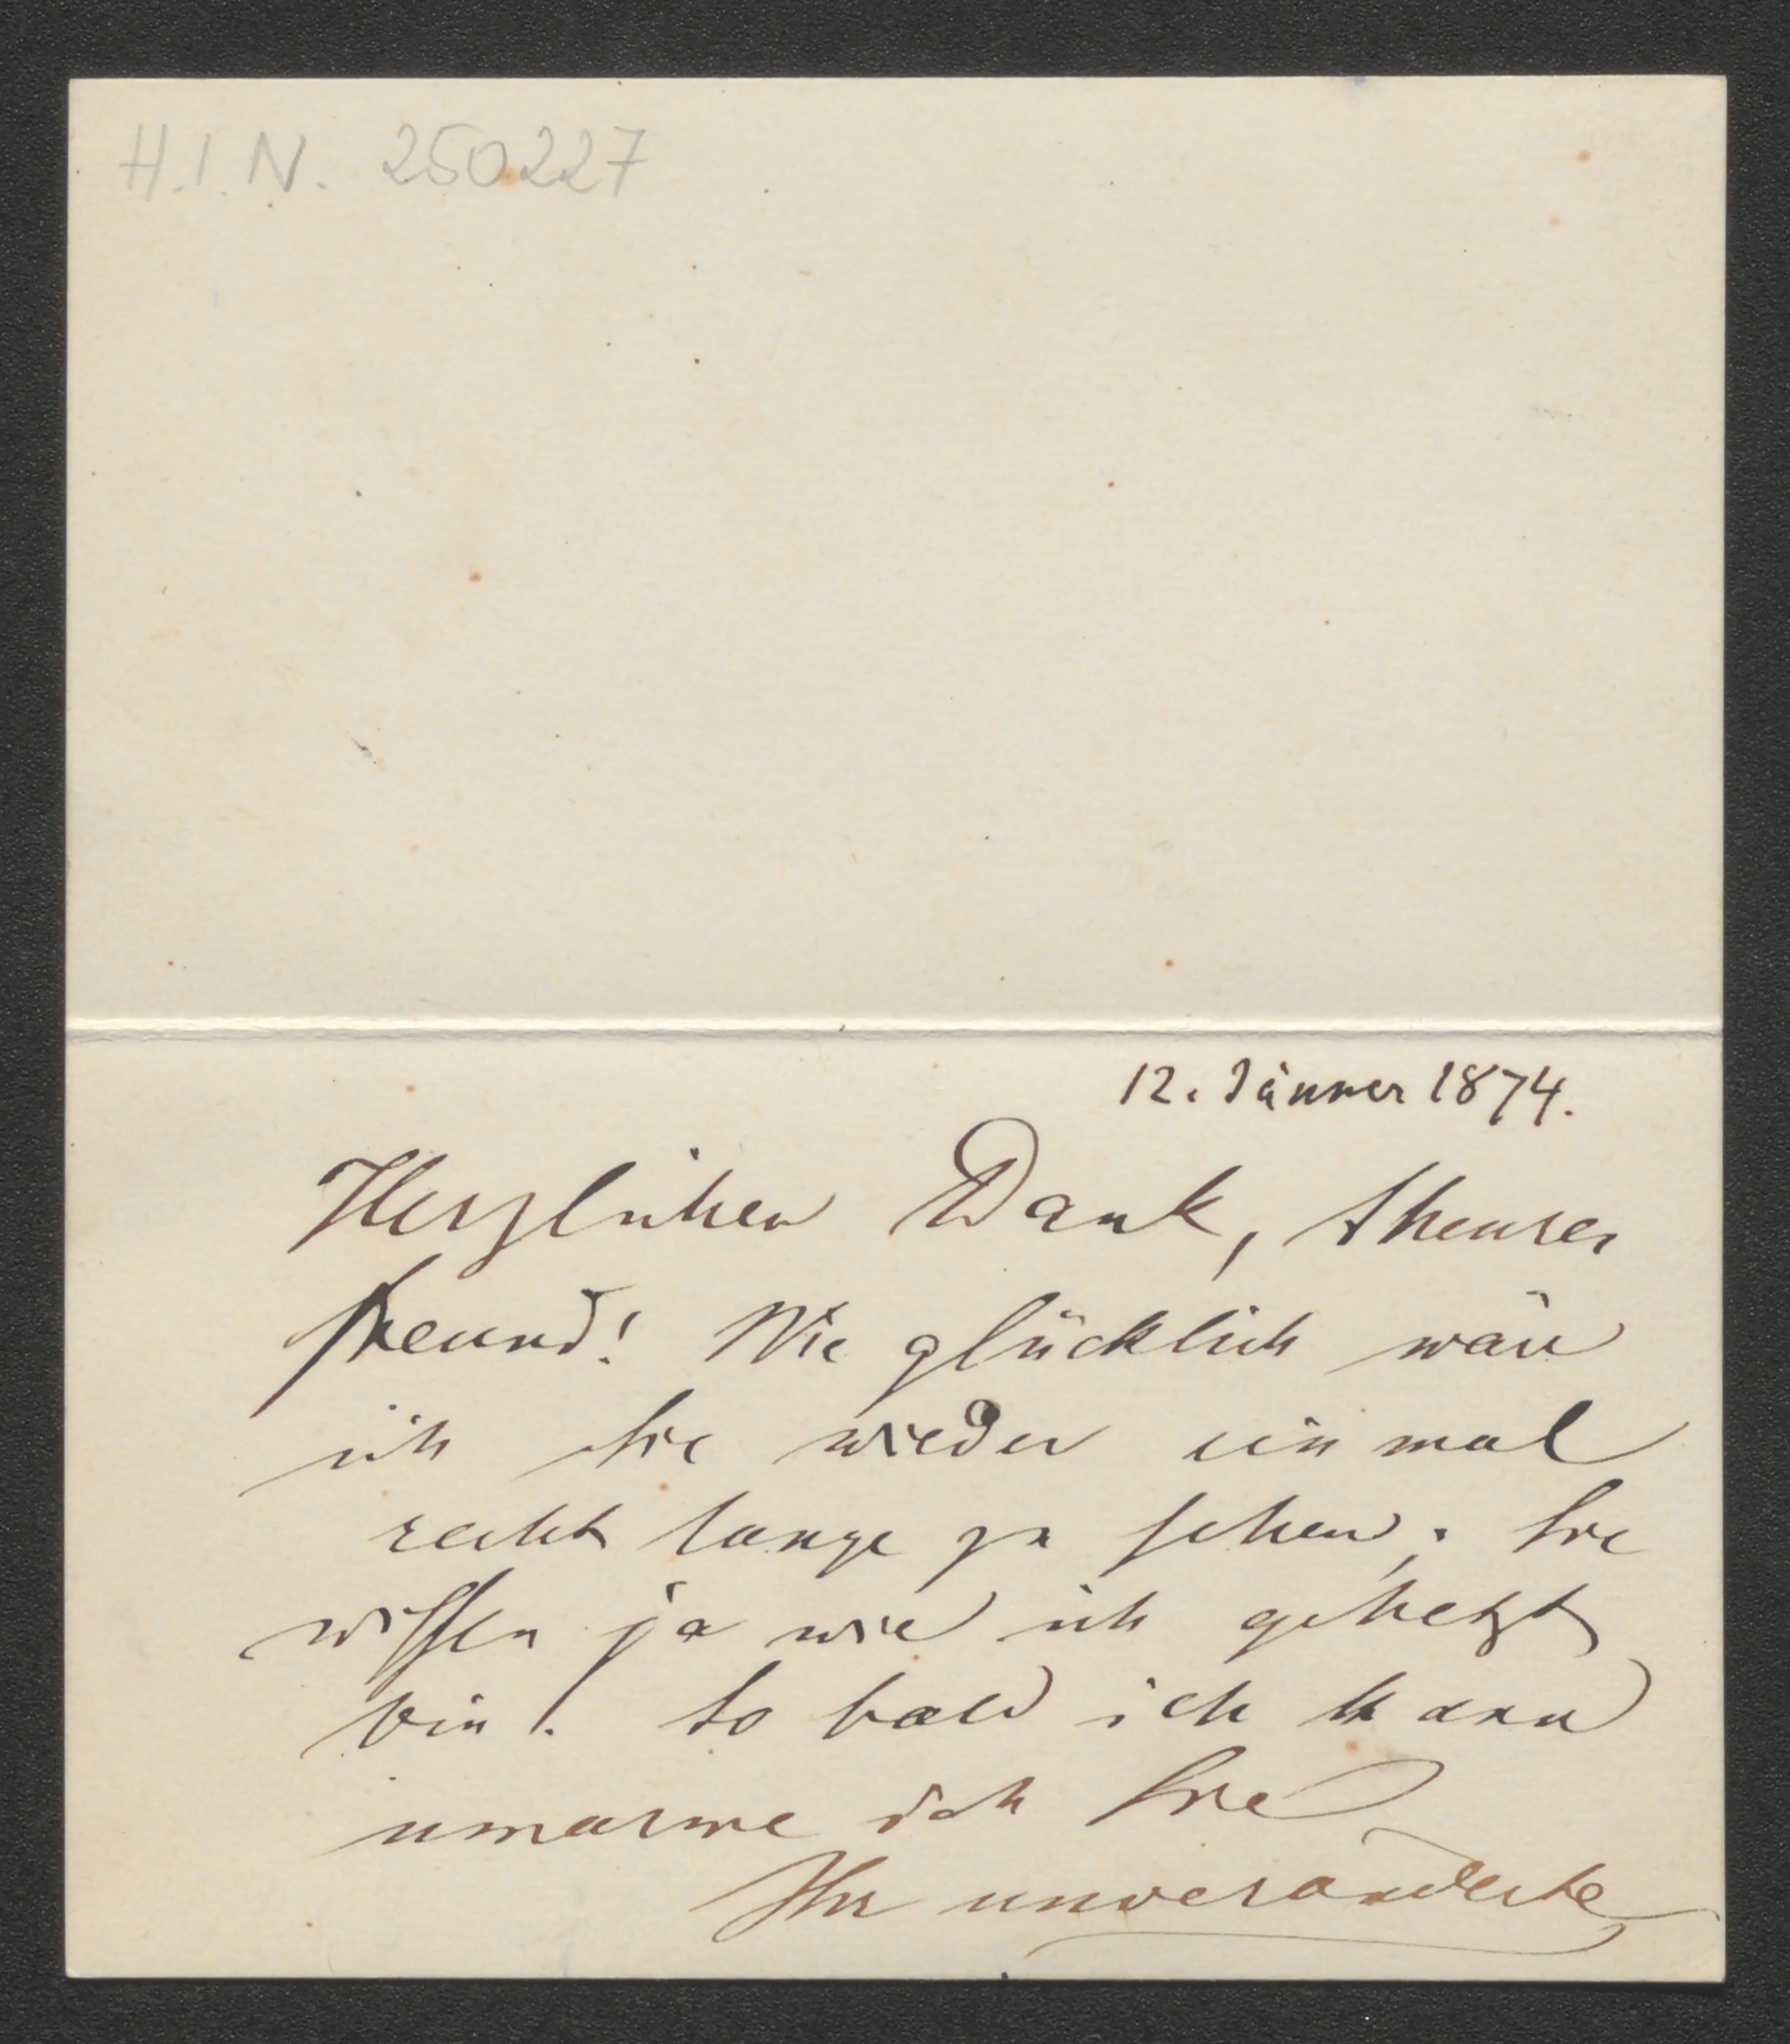 H.I.N. 250227
12. Jänner 1874.
Herzlichen Dank, theurer
Freund! Wie glücklich wäre
ich Sie wieder einmal
recht lange zu sehen; Sie
wissen ja wie ich gehetzt
bin. So bald ich kann
umarme ich Sie
Ihr unveränderte